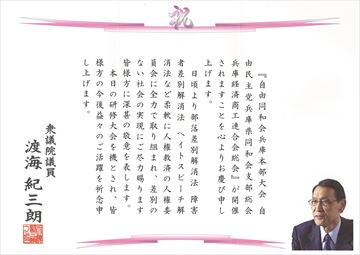 祝
『自由同和会兵庫本部大会 自
由民主党兵庫県同和会支部総会
兵庫経済商工連合会総会』が開催
されますことを心よりお慶び申し
上げます。
日頃より部落差別解消法 障害
者差別解消法 ヘイトスピーチ解
消法など柔軟に人権救済の人権委
員会に全力で取り組まれ、差別の
ない社会の実現にご尽力賜ります
皆様方に深甚の敬意を表します。
本日の研修大会を機とされ、皆
様方の今後益々のご活躍を祈念申
し上げます。
衆議院議員
渡海 紀三朗